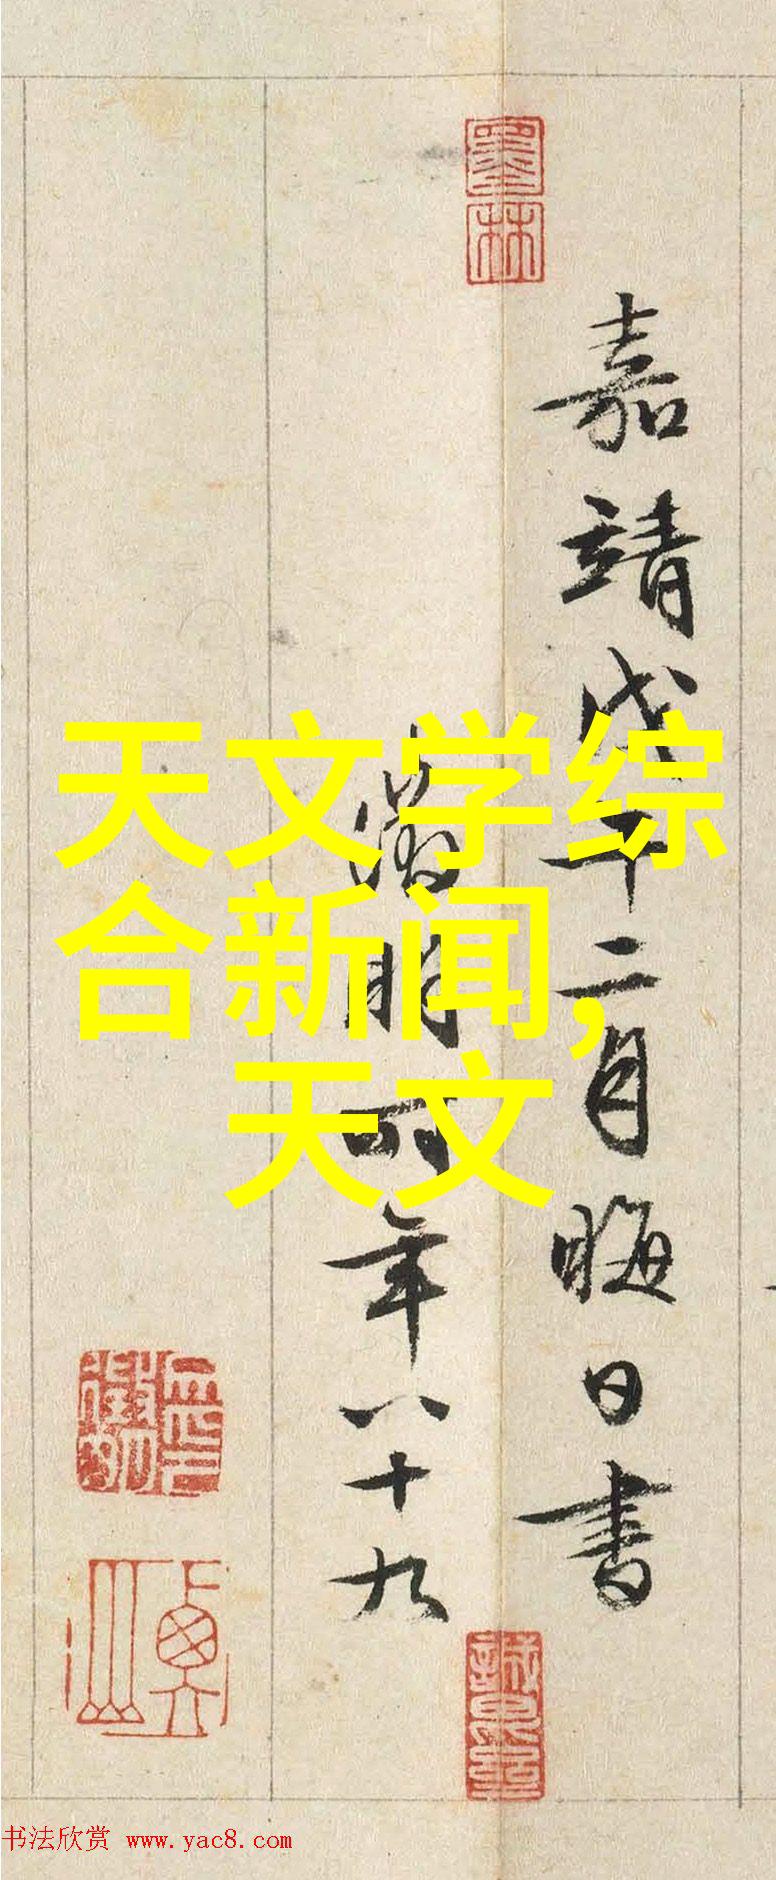 墨林
嘉靖戊午二月晦日書
徵明時年八十九
天文学综
合新闻,
天文
书法欣赏 www.yac8.com